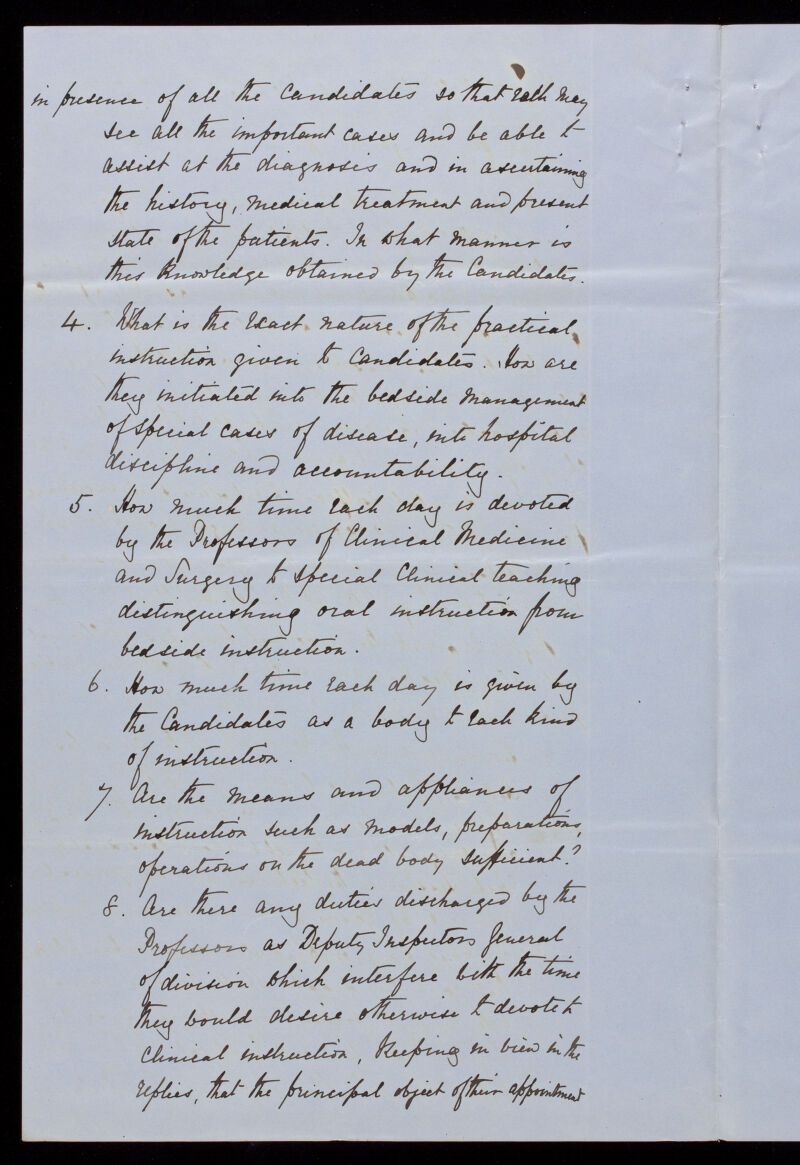 in presence of all the Candidates so that each may
see all the important cases and be able to
assist at the diagnosis and in ascertaining
the history, medical treatment and present
state of the patients. In what manner is
this knowledge obtained by the Candidates.
4. What is the exact nature of the practical
instruction given to Candidates. How are
they initiated into the bedside management
of special cases of disease, into hospital
discipline and accountability.
5. How much time each day is devoted
by the Professors of Clinical Medicine
and Surgery to special Clinical teaching
distinguishing oral instruction from
bedside instruction.
6. How much time each day is given by
the Candidates as a body to each kind
of instruction.
7. Are the means and appliances of
instruction such as models, preparations,
operations on the dead body sufficient?
8. Are there any duties discharged by the
Professors as Deputy Inspectors General
of division which interfere with the time
they would desire otherwise to devote to
Clinical instruction, keeping in view in the
replies, that the principal object of their appointment